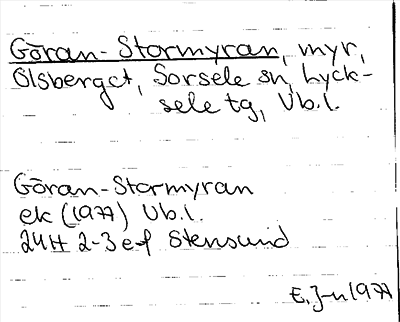 Göran-Stormyran, myr,
Olsberget, Sorsele sn, Lyck-
sele tg, Vb.l.
Göran-Stormyran
ek (1977) Vb.l.
24H 2-3 e-f Stensund
E. J-n 1977